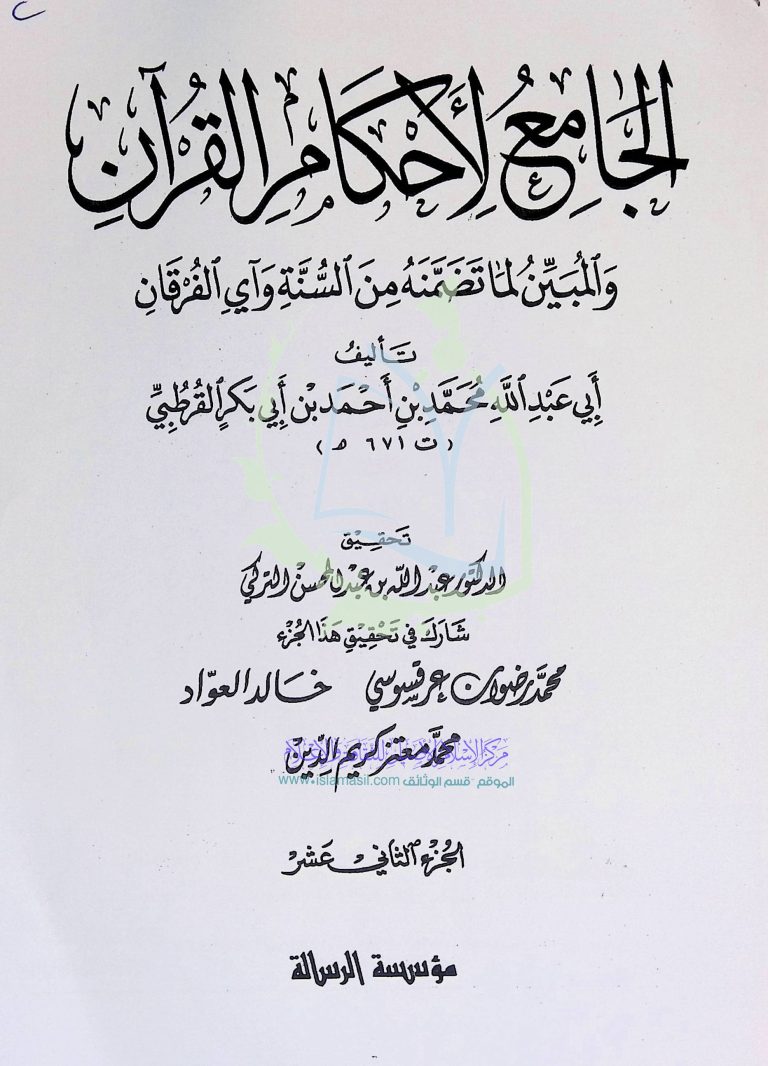 الجَامِعُ لِأَحْكَامِ القُرْآنِ
وَالمُبَيِّنُ لِمَا تَضَمَّنَهُ مِنَ السُّنَّةِ وَآيِ الفُرْقَانِ
تَأليفُ
أَبِي عَبْدِ اللَّهِ مُحَمَّدِ بْنِ أَحْمَدَ بْنِ أَبِي بَكْرٍ القُرْطُبِيِّ
(ت ٦٧١ هـ)
تَحقِيق
الدكتور عبد الله بن عبد المحسن التركي
شَارَكَ فِي تَحْقِيقِ هَذَا الجُزْء
محمّد رضوان عرقسوسي خالد العوّاد
محمّد معتز كريم الدّين
الموقع - قسم الوثائق www.islamasil.com
الجُزْء الثَّانِي عَشَر
مؤسسة الرسالة